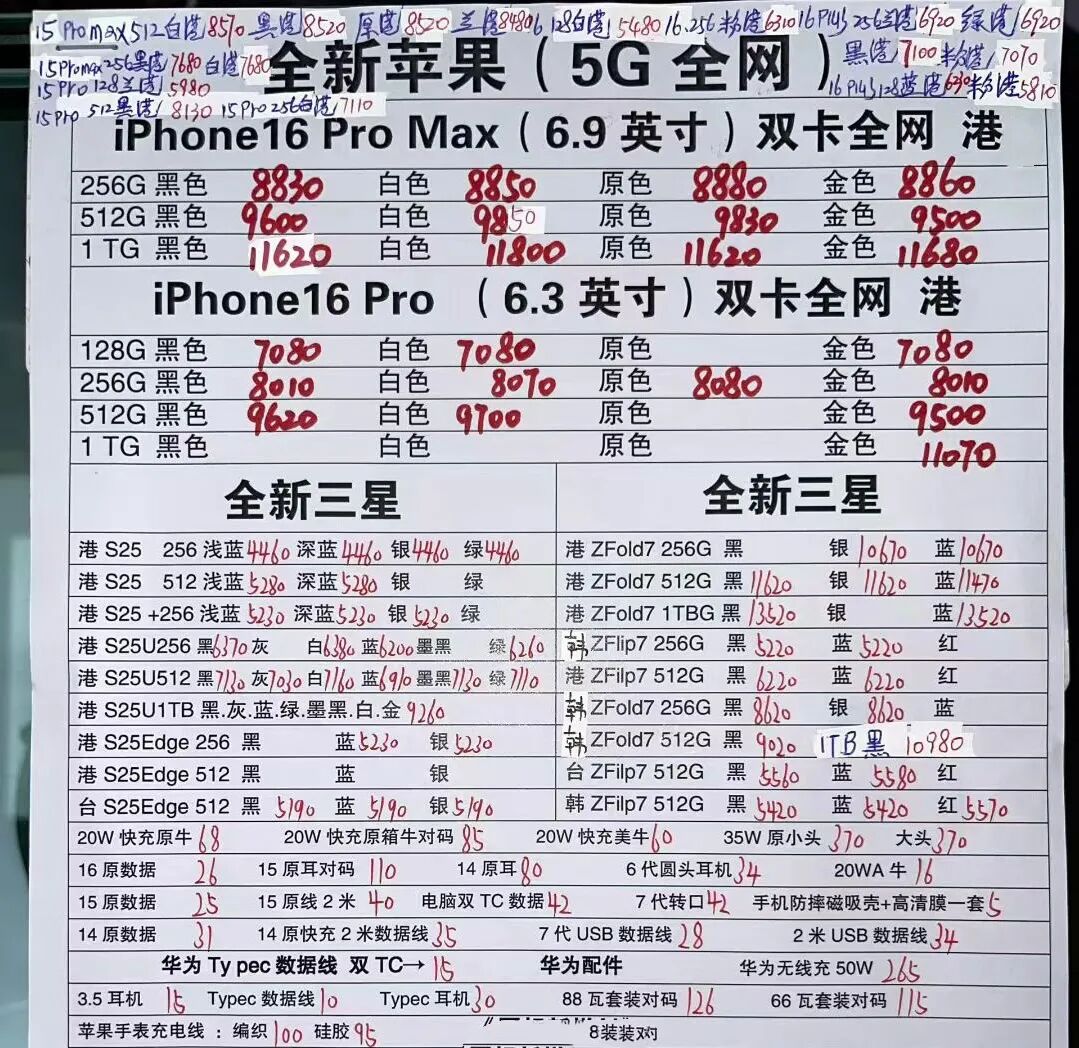 15 Promax 512白港/8570 黑港/8520 原港/8520 兰港8480 16 128白港/5480 16.256粉港6310 16Plus 256兰港/6920 绿港/6920
15Promax256黑港/7680 白港/7680 全新苹果（5G 全网） 黑港/7100 粉港/7070
15Pro 128兰港/5980 16Plus128蓝港/ 粉港5810
15Pro 512黑港/8130 15Pro 256白港/7110
iPhone16 Pro Max（6.9 英寸）双卡全网 港
256G 黑色 8830 白色 8850 原色 8880 金色 8860
512G 黑色 9600 白色 9850 原色 9830 金色 9500
1 TG 黑色 11620 白色 11800 原色 11620 金色 11680
iPhone16 Pro （6.3 英寸）双卡全网 港
128G 黑色 7080 白色 7080 原色 金色 7080
256G 黑色 8010 白色 8070 原色 8080 金色 8010
512G 黑色 9620 白色 9700 原色 金色 9500
1 TG 黑色 白色 原色 金色 11070
全新三星 全新三星
港 S25 256 浅蓝4460 深蓝4460 银4460 绿4460 港 ZFold7 256G 黑 银10670 蓝10670
港 S25 512 浅蓝5280 深蓝5280 银 绿 港 ZFold7 512G 黑11620 银 11620 蓝11470
港 S25 +256 浅蓝5230 深蓝5230 银5230 绿 港 ZFold7 1TBG 黑13520 银 蓝13520
港 S25U256 黑6370 灰 白6380 蓝6200 墨黑 绿6260 韩 ZFlip7 256G 黑 5220 蓝 5220 红
港 S25U512 黑7130 灰7030 白7160 蓝6910 墨黑7130 绿7110 港 ZFilp7 512G 黑 6220 蓝 6220 红
港 S25U1TB 黑.灰.蓝.绿.墨黑.白.金 9260 韩 ZFold7 256G 黑 8620 银 8620 蓝
港 S25Edge 256 黑 蓝5230 银5230 韩 ZFold7 512G 黑 9020 1TB黑 10980
港 S25Edge 512 黑 蓝 银 台 ZFilp7 512G 黑 5560 蓝 5580 红
台 S25Edge 512 黑 5190 蓝 5190 银5190 韩 ZFilp7 512G 黑 5420 蓝 5420 红5570
20W 快充原牛 68 20W 快充原箱牛对码 85 20W 快充美牛60 35W 原小头 370 大头370
16 原数据 26 15 原耳对码 110 14 原耳 80 6 代圆头耳机34 20WA 牛 16
15 原数据 25 15 原线 2 米 40 电脑双 TC 数据42 7 代转口42 手机防摔磁吸壳+高清膜一套5
14 原数据 31 14 原快充 2 米数据线35 7 代 USB 数据线 28 2 米 USB 数据线 34
华为 Ty pec 数据线 双 TC→ 15 华为配件 华为无线充 50W 265
3.5 耳机 15 Typec 数据线10 Typec 耳机30 88 瓦套装对码 126 66 瓦套装对码 115
苹果手表充电线：编织100 硅胶95